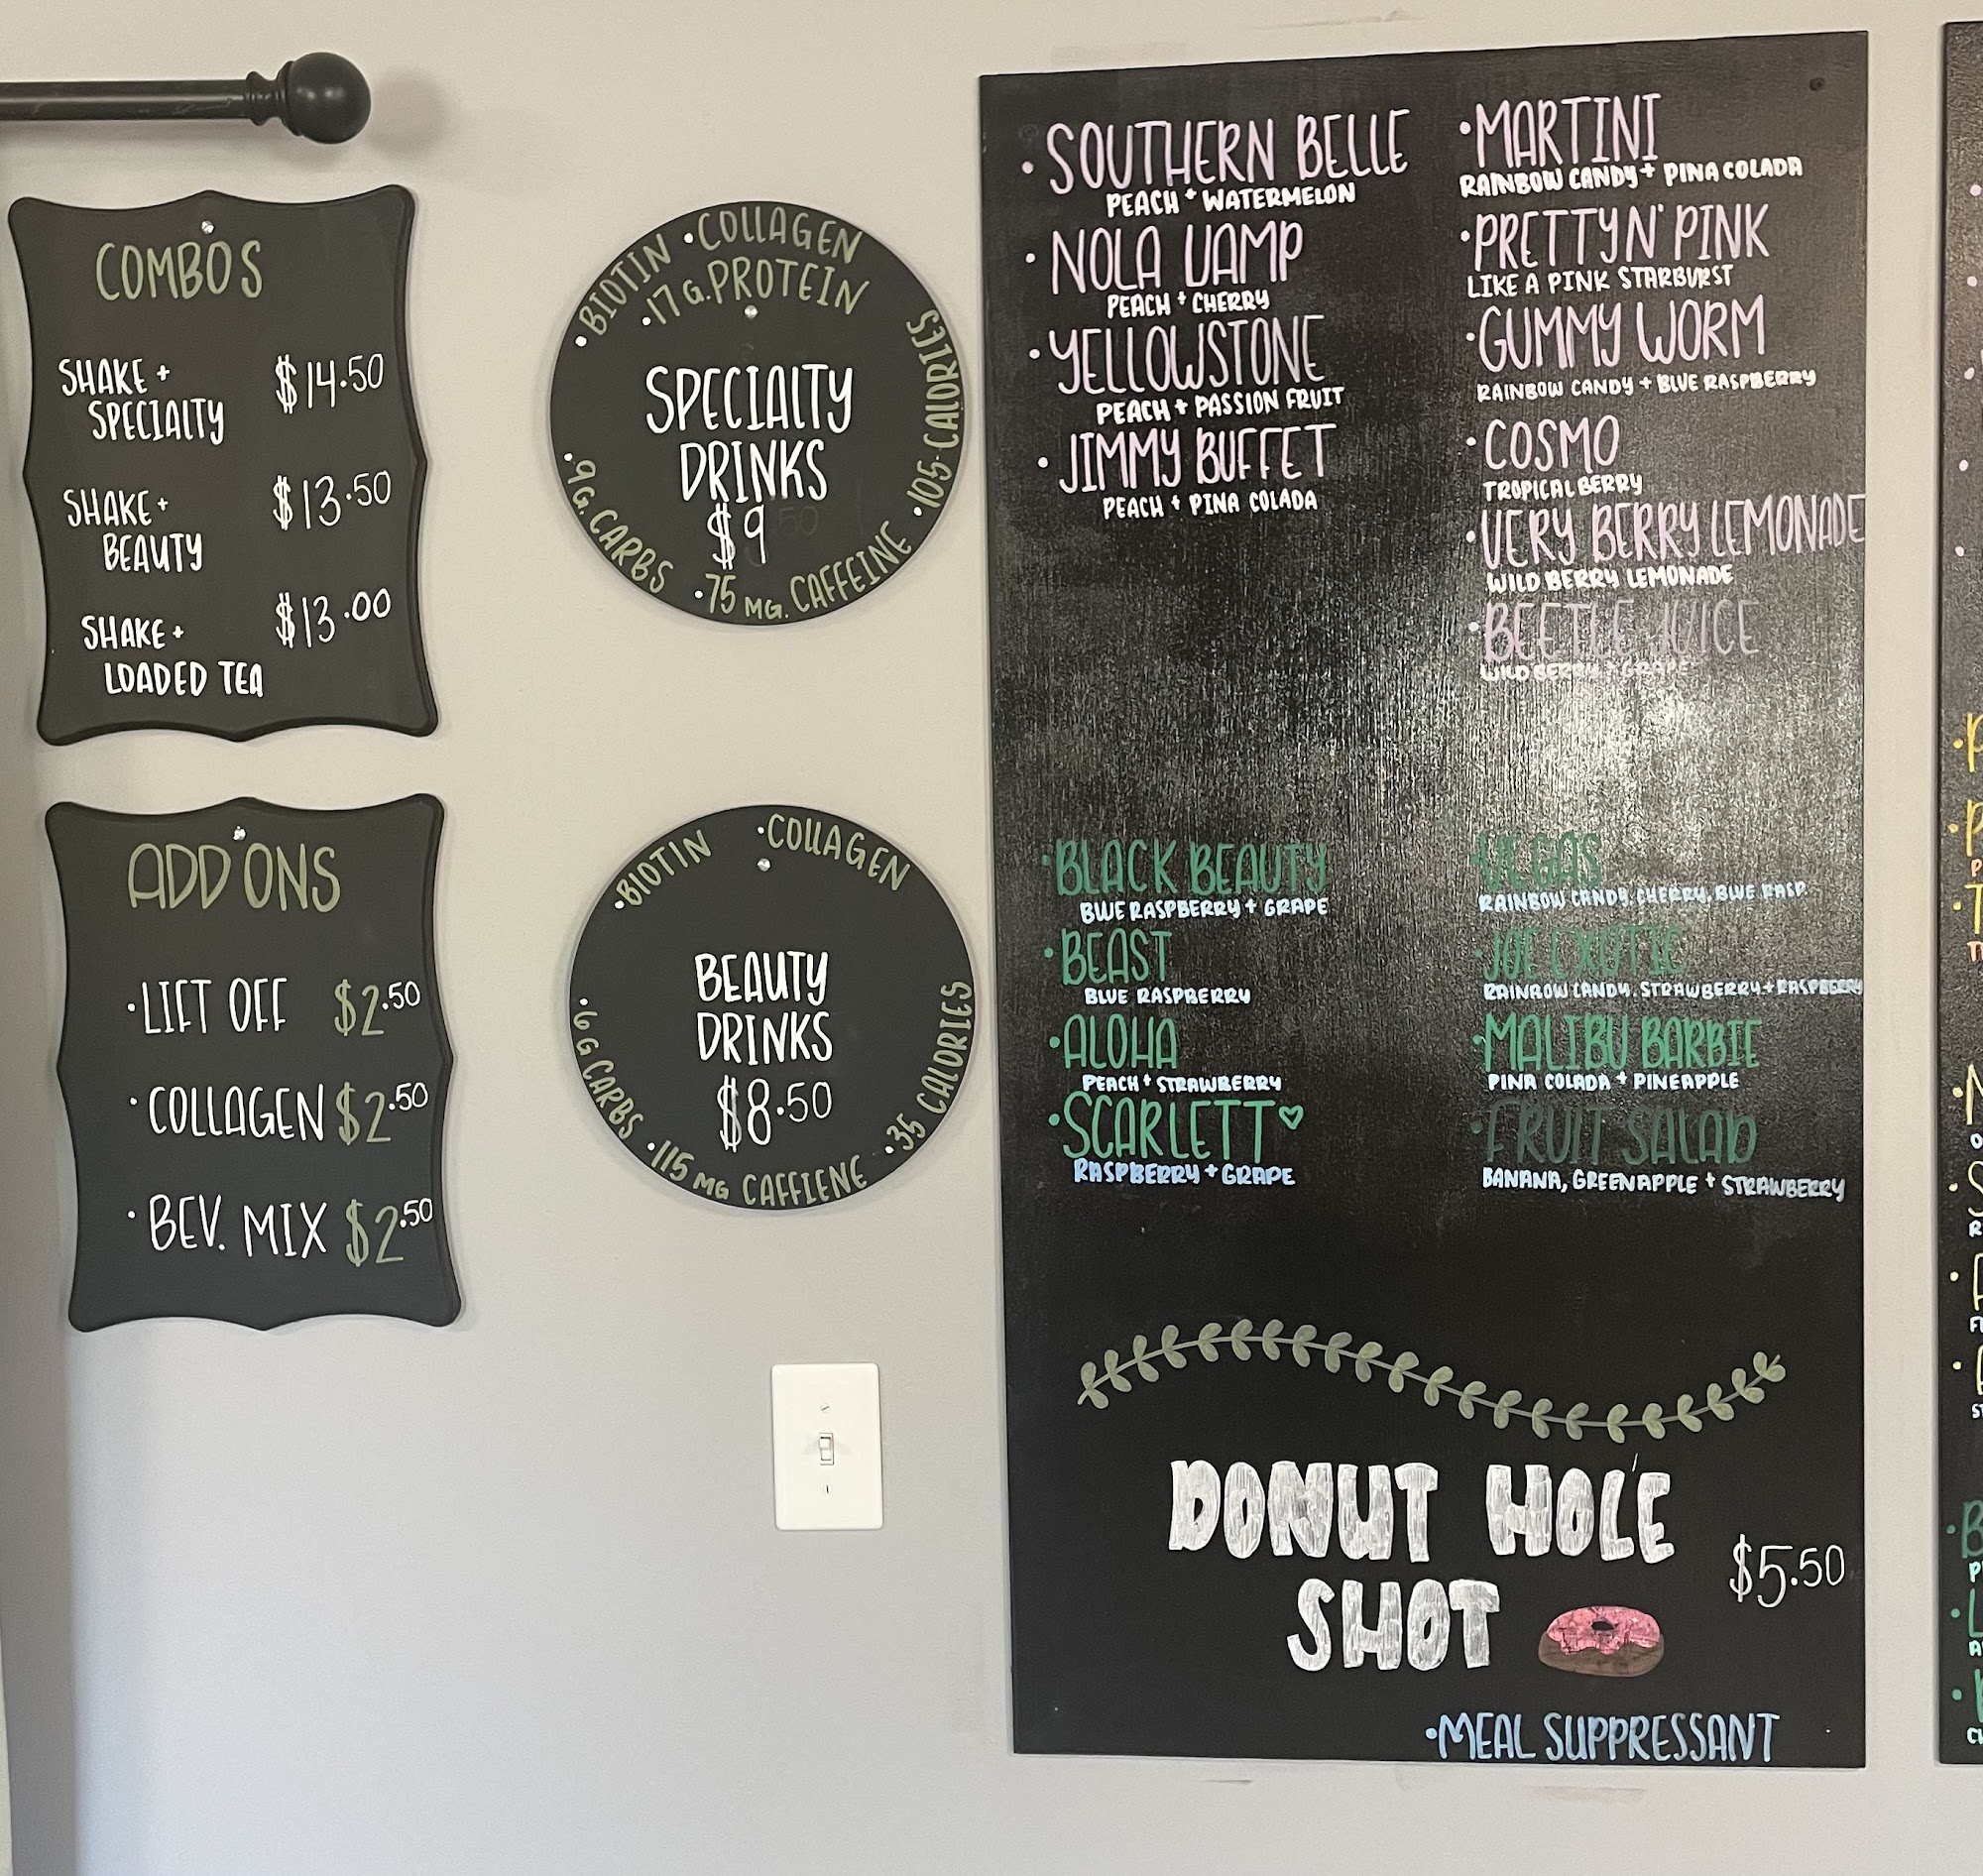 COMBOS
SHAKE +
SPECIALTY
$14.50
SHAKE +
BEAUTY
$13.50
SHAKE +
LOADED TEA
$13.00
ADD ONS
·LIFT OFF $2.50
·COLLAGEN $2.50
·BEV. MIX $2.50
·BIOTIN ·COLLAGEN
·17 G. PROTEIN
·105 CALORIES
SPECIALTY
DRINKS
$9
·9 G. CARBS
·75 MG. CAFFEINE
·BIOTIN ·COLLAGEN
BEAUTY
DRINKS
$8.50
·6 G CARBS
·115 MG CAFFIENE
·35 CALORIES
·SOUTHERN BELLE
PEACH + WATERMELON
·NOLA VAMP
PEACH + CHERRY
·YELLOWSTONE
PEACH + PASSION FRUIT
·JIMMY BUFFET
PEACH + PINA COLADA
·MARTINI
RAINBOW CANDY + PINA COLADA
·PRETTY N' PINK
LIKE A PINK STARBURST
·GUMMY WORM
RAINBOW CANDY + BLUE RASPBERRY
·COSMO
TROPICAL BERRY
·VERY BERRY LEMONADE
WILD BERRY LEMONADE
·BEETLE JUICE
WILD BERRY + GRAPE
·BLACK BEAUTY
BLUE RASPBERRY + GRAPE
·BEAST
BLUE RASPBERRY
·ALOHA
PEACH + STRAWBERRY
·SCARLETT♡
RASPBERRY + GRAPE
·VEGAS
RAINBOW CANDY, CHERRY, BLUE RASP.
·JOE EXOTIC
RAINBOW CANDY, STRAWBERRY + RASPBERRY
·MALIBU BARBIE
PINA COLADA + PINEAPPLE
·FRUIT SALAD
BANANA, GREEN APPLE + STRAWBERRY
DONUT HOLE
SHOT
$5.50
·MEAL SUPPRESSANT